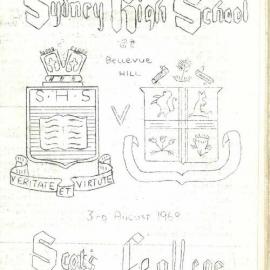 Sydney High School
at
Bellevue
Hill
S·H·S
V
VERITATE ET VIRTUTE
3rd August 1960
Scots College